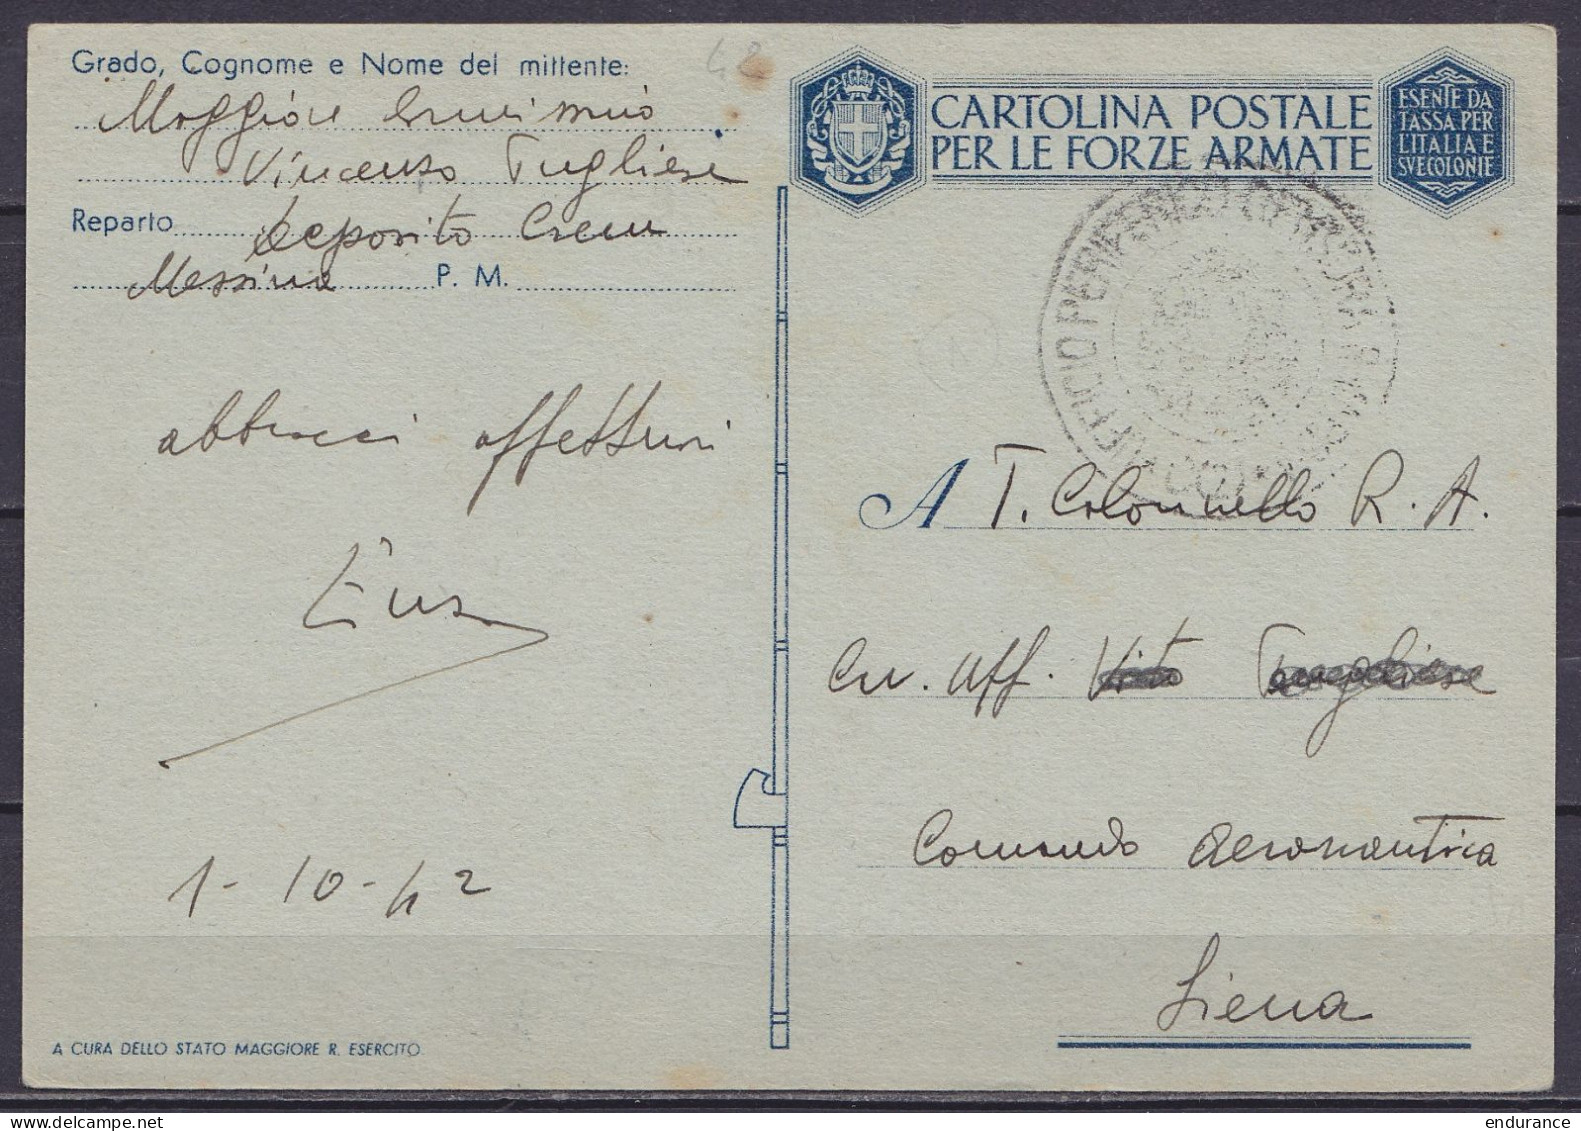 Grado, Cognome e Nome del mittente:
42
Maggiore
Vincenzo Pugliese
Reparto deposito Crem
Messina P. M.
abbracci affettuosi
1-10-42
A CURA DELLO STATO MAGGIORE R. ESERCITO
CARTOLINA POSTALE
PER LE FORZE ARMATE
ESENTE DA
TASSA PER
L'ITALIA E
SVE COLONIE
A T. Colonnello R. A.
Cav. Uff. Vito Pugliese
Comando Aeronautica
Siena
delcampe.net
endurance